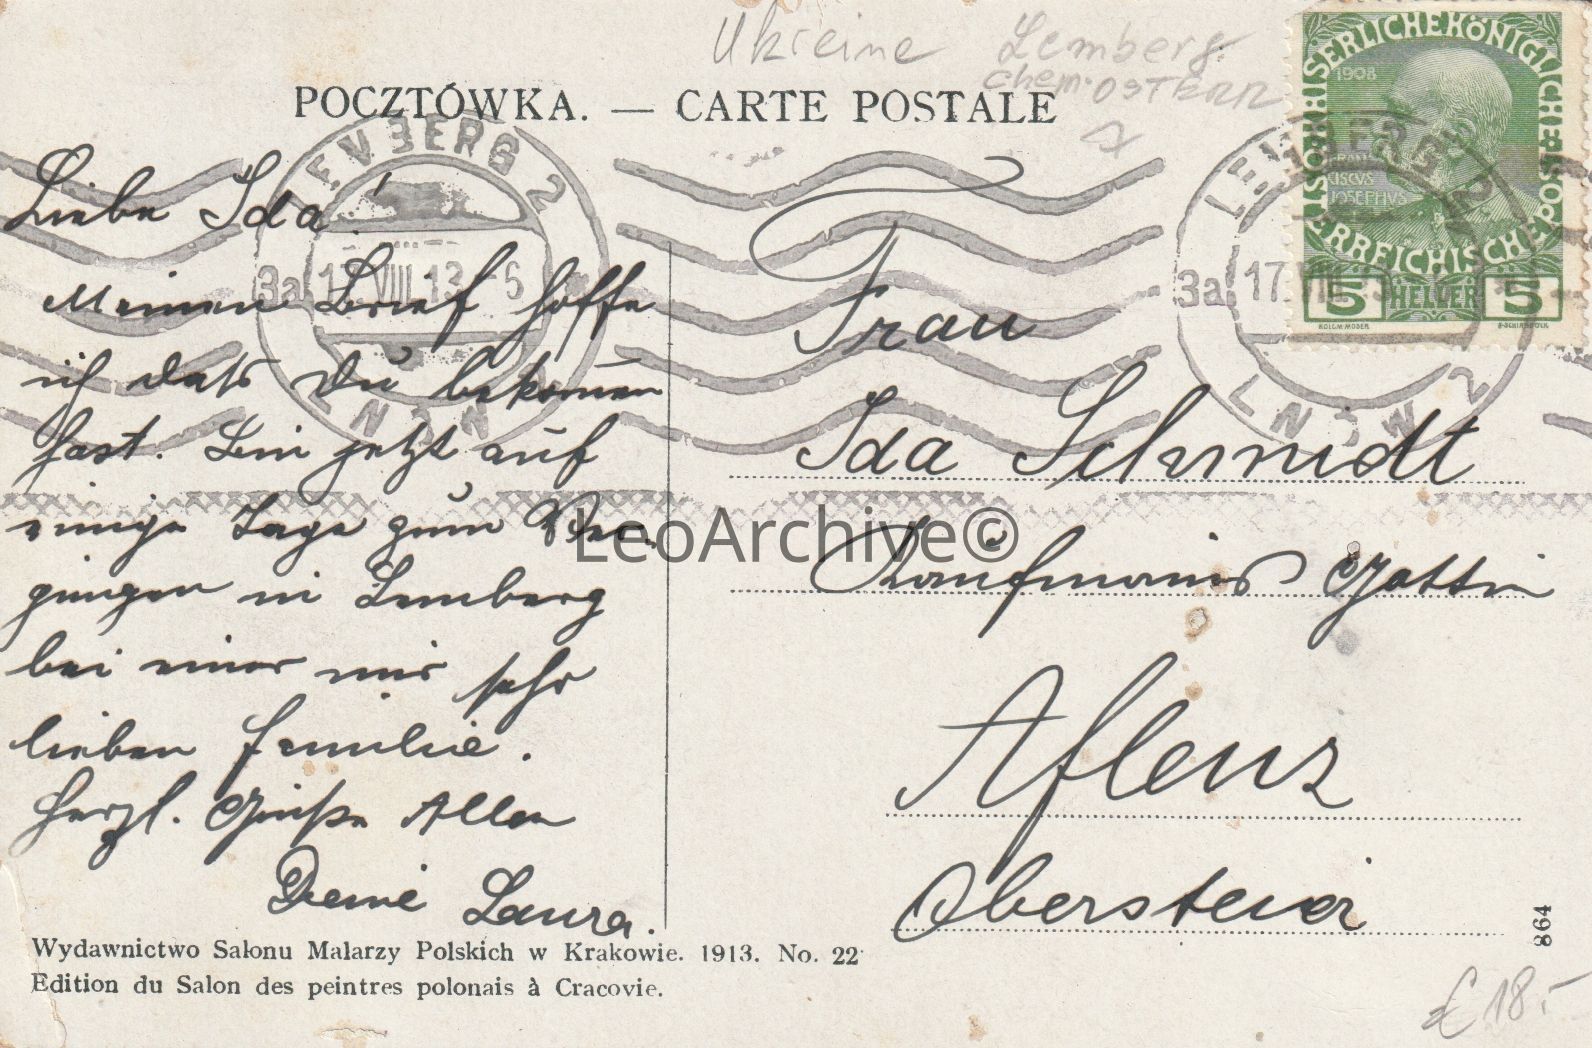 Ukreine Lemberg.
POCZTÓWKA. — CARTE POSTALE
KAISERLICHEKÖNIGLICHE
ÖSTERREICHISCHE POST
1908
FRAN
CISCVS
JOSEPHVS
5 HELLER 5
KOLOM·MOSER
LEMBERG 2
3a 17 VIII 13-6
LWÓW 2
LEMBERG 2
3a 17. VIII
LWÓW 2
Liebe Ida!
Meinen Brief hoffe
ich dass Du bekommen
hast. Bin jetzt auf
einige Tage zum Ver-
gnügen in Lemberg
bei einer mir sehr
lieben Familie.
Herzl. Grüße Allen
Deine Laura.
Frau
Ida Schmidt
Kaufmanns Gattin
Aflenz
Obersteier
LeoArchive©
Wydawnictwo Salonu Malarzy Polskich w Krakowie. 1913. No. 22
Edition du Salon des peintres polonais à Cracovie.
864
€ 18.-